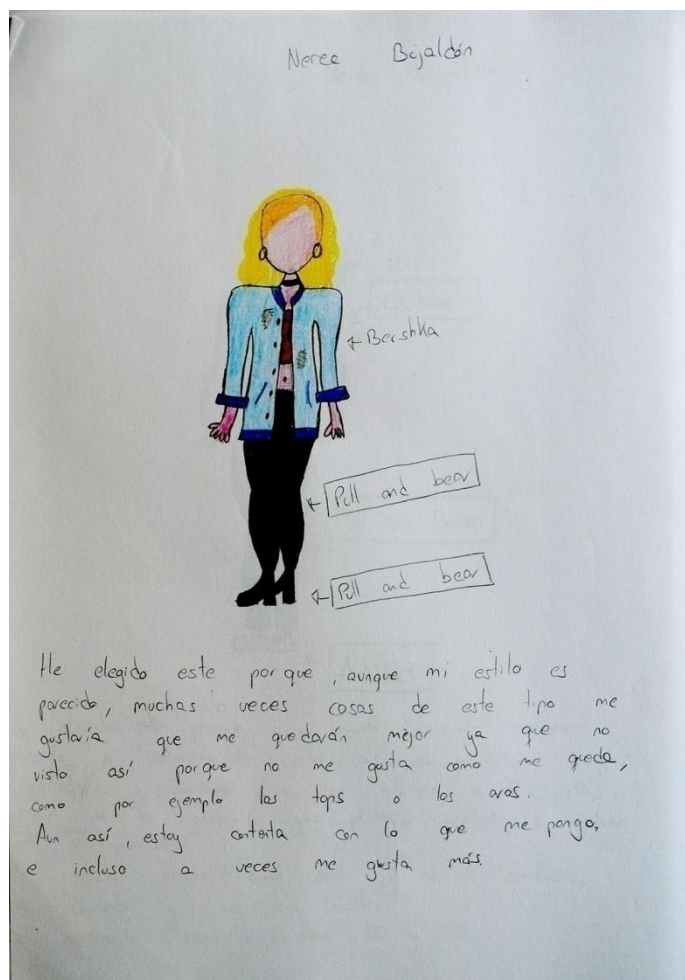 Nerea Bajaldón
← Bershka
← Pull and bear
← Pull and bear
He elegido este por que, aunque mi estilo es
parecido, muchas veces cosas de este tipo me
gustaría que me quedarán mejor ya que no
visto así porque no me gusta como me queda,
como por ejemplo los tops o los aros.
Aun así, estoy contenta con lo que me pongo,
e incluso a veces me gusta más.